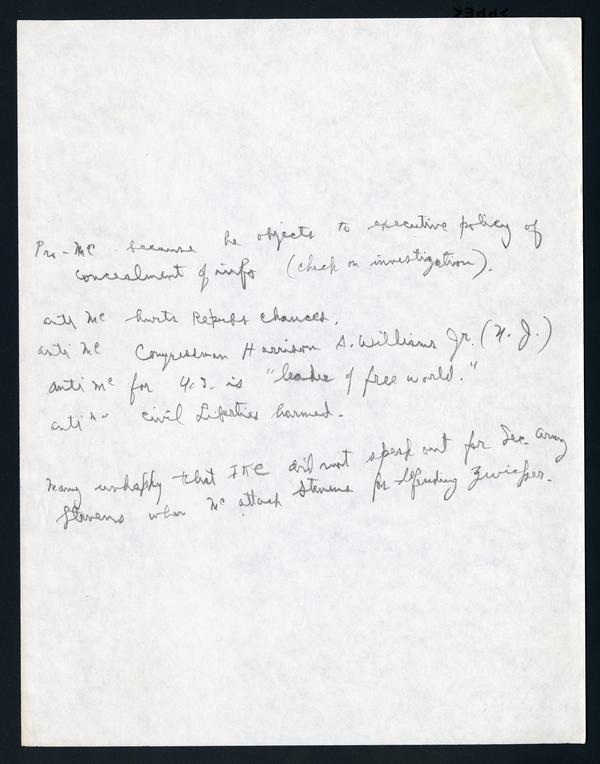 Pro-Mc because he objects to executive policy of
concealment of info (check on investigation).
anti Mc hurts Repubs chances.
anti Mc Congressman Harrison A. Williams Jr. (N. J.)
anti Mc for U.S. is "leader of free world."
anti " " civil liberties harmed.
Many unhappy that IKE did not speak out for Sec. Army
Stevens when Mc attack Stevens for defending Zwicker.